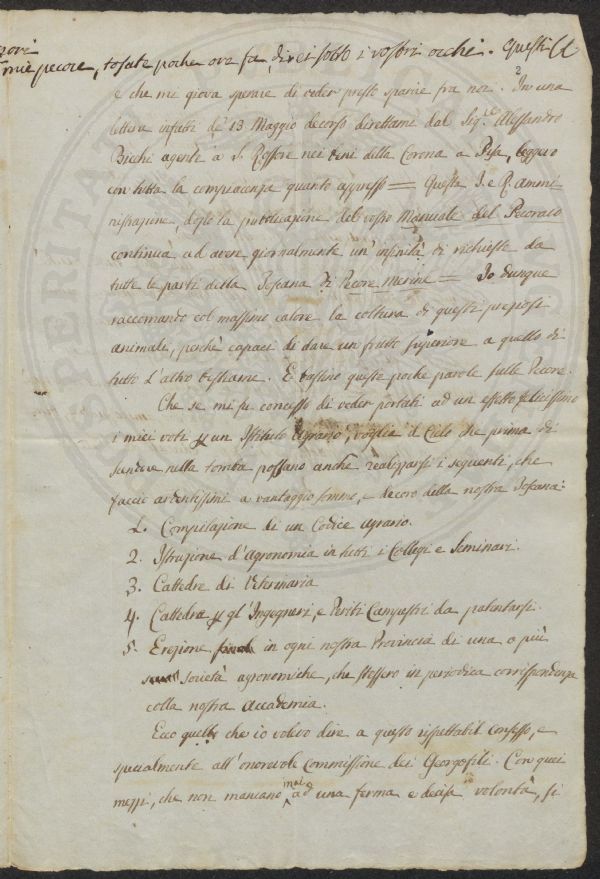 mie pecore, tosate poche ore fa, direi sotto i vostri occhi. Questi
è che mi giova sperare di veder presto sparire fra noi. In una
lettera infatti de' 13 Maggio decorso direttami dal Sig.re Alessandro
Bicchi agente a S. Rossore nei beni della Corona a Pisa, leggevo
con tutta la compiacenza quanto appresso = Questa I. e R. Ammi-
nistrazione, dopo la pubblicazione del vostro Manuale del Pecoraio
continua ad avere giornalmente un' infinità di richieste da
tutte le parti della Toscana di Pecore Merine = Io dunque
raccomando col massimo calore la coltura di questi preziosi
animali, perchè capaci di dare un frutto superiore a quello di
tutto l'altro bestiame. E bastino queste poche parole sulle Pecore.
Che se mi fu concesso di veder portati ad un effetto felicissimo
i miei voti p un Istituto Agrario, voglia il Cielo che prima di
scendere nella tomba possano anche realizzarsi i seguenti, che
faccio ardentissimi a vantaggio sommo, e decoro della nostra Toscana:
1. Compilazione di un Codice agrario.
2. Istruzione d'agronomia in tutti i Collegi e Seminari.
3. Cattedre di Veterinaria
4. Cattedra p gl' Ingegneri, e Periti Campestri da patentarsi.
5. Erezione in ogni nostra Provincia di una o più
società agronomiche, che stessero in periodica corrispondenza
colla nostra Accademia.
Ecco quello che io volevo dire a questo rispettabil Consesso, e
specialmente all'onorevole Commissione dei Georgofili. Con quei
mezzi, che non mancano mai ad una ferma e decisa volontà, si